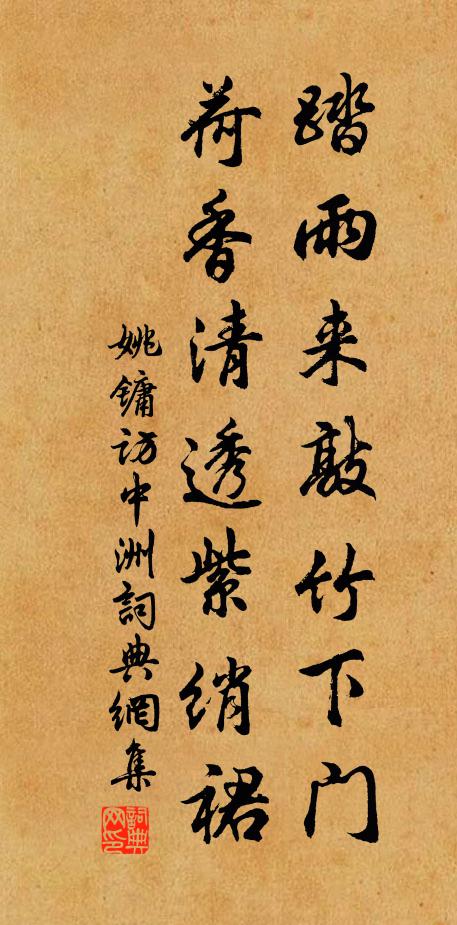 踏雨来敲竹下门
荷香清透紫绡裙
姚鏞访中洲詞典網集
詞典
网印